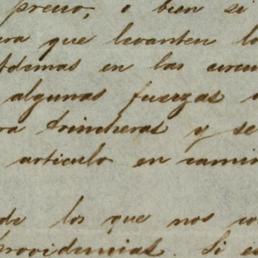 preciso, o bien si
ra que levanten lo
Ademas en las circun
algunas fuerzas
ra trincheras y se
articulo en camin
de los que nos co
providencias. Si es